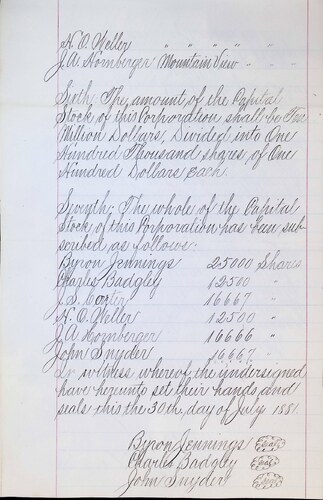 N. O. Weller " " " " "
J. A. Hornberger Mountain View " " "
Sixth: The amount of the Capital
Stock of this Corporation shall be Ten
Million Dollars, Divided into One
Hundred Thousand shares, of One
Hundred Dollars Each.
Seventh: The whole of the Capital
Stock of this Corporation has been sub-
scribed as follows:
Byron Jennings 25000 Shares
Charles Badgley 12500 "
J. S. 16667 "
N. O. Weller 12500 "
J. A. Hornberger 16666 "
John Snyder 16667 "
In witness whereof, the undersigned
have hereunto set their hands, and
seals this the 30th, day of July 1881.
Byron Jennings (seal)
Charles Badgley (seal)
John Snyder (seal)